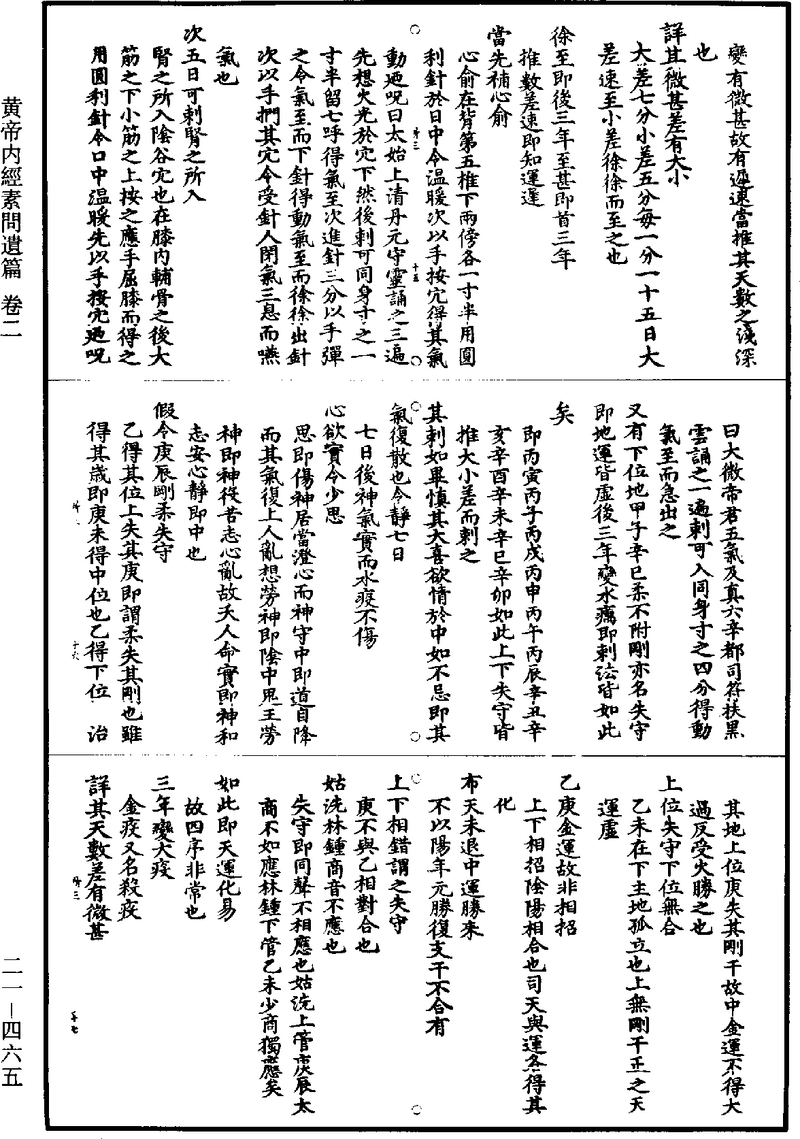 黄帝内經素問遺篇 卷二
二一—四六五
變有微甚故有遲速當推其天數之淺深
也
詳其微甚差有大小
大差七分小差五分每一分一十五日大
差速至小差徐徐而至之也
徐至即後三年至甚即首三年
推數差速即知運遲
當先補心俞
心俞在背第五椎下兩傍各一寸半用圓
利針於日中令温暖次以手按穴得其氣
動廼呪曰太始上清丹元守靈誦之三遍
先想火光於穴下然後刺可同身寸之一
寸半留七呼得氣至次進針三分以手彈
之令氣至而下針得動氣至而徐徐出針
次以手捫其穴令受針人閉氣三息而嚥
氣也
次五日可刺腎之所入
腎之所入陰谷穴也在膝内輔骨之後大
筋之下小筋之上按之應手屈膝而得之
用圓利針令口中温暖先以手按穴廼呪
曰大微帝君五氣及真六辛都司符扶黑
雲誦之一遍刺可入同身寸之四分得動
氣至而急出之
又有下位地甲子辛巳柔不附剛亦名失守
即地運皆虚後三年變水癘即刺法皆如此
矣
即丙寅丙子丙戌丙申丙午丙辰辛丑辛
亥辛酉辛未辛巳辛卯如此上下失守皆
推大小差而刺之
其刺如畢慎其大喜欲情於中如不忌即其
氣復散也令靜七日
七日後神氣實而水疫不傷
心欲實令少思
思即傷神居當澄心而神守中即道自降
而其氣復上人亂想勞神即陰中鬼王勞
神即神役苦志心亂故天人命實即神和
志安心靜即中也
假令庚辰剛柔失守
乙得其位上失其庚即謂柔失其剛也雖
得其歲即庚未得中位也乙得下位 治
其地上位庚失其剛干故中金運不得大
過反受火勝之也
上位失守下位無合
乙未在下主地孤立也上無剛干正之天
運虚
乙庚金運故非相招
上下相招陰陽相合也司天與運各得其
化
布天未退中運勝來
不以陽年元勝復支干不合有
上下相錯謂之失守
庚不與乙相對合也
姑洗林鍾商音不應也
失守即同聲不相應也姑洗上管庚辰太
商不如應林鍾下管乙未少商獨應矣
如此即天運化易
故四序非常也
三年變大疫
金疫又名殺疫
詳其天數差有微甚